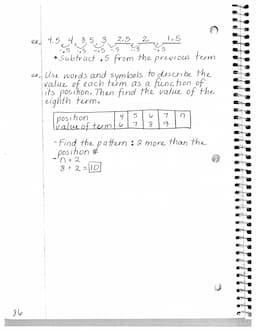 ex. 4.5, 4, 3.5, 3, 2.5, 2, 1.5
.5 .5 .5 .5 .5 .5
• Subtract .5 from the previous term
ex. Use words and symbols to describe the
value of each term as a function of
its position. Then find the value of the
eighth term.
position 4 5 6 7 n
value of term 6 7 8 9
- Find the pattern: 2 more than the
position #
- n + 2
8 + 2 = 10